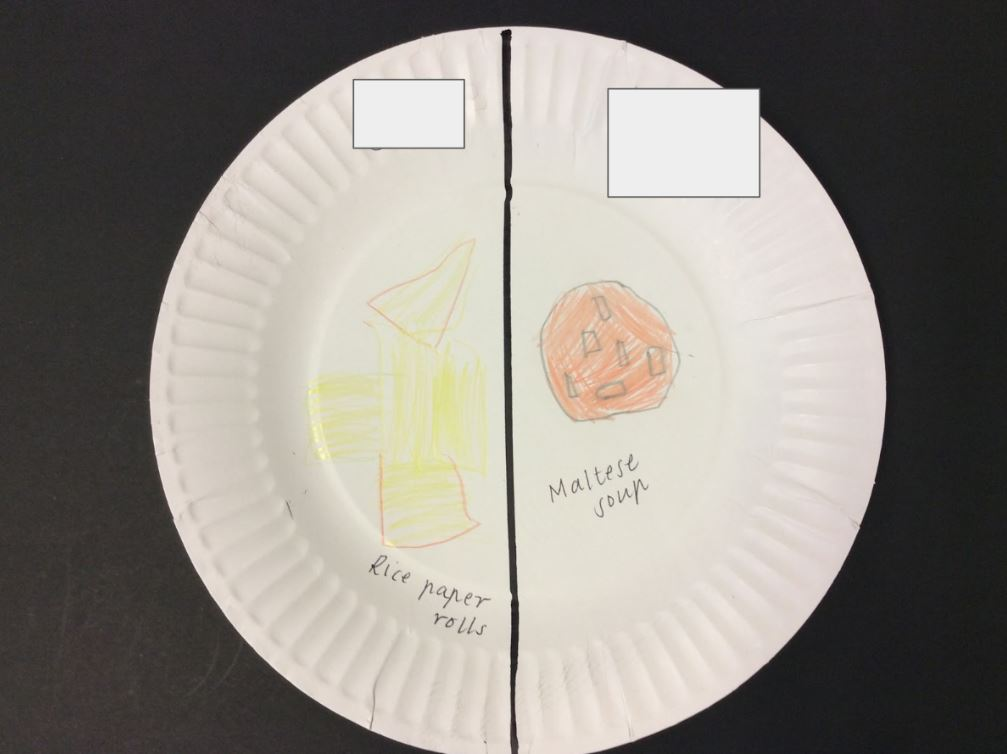 Rice paper
rolls
Maltese
soup